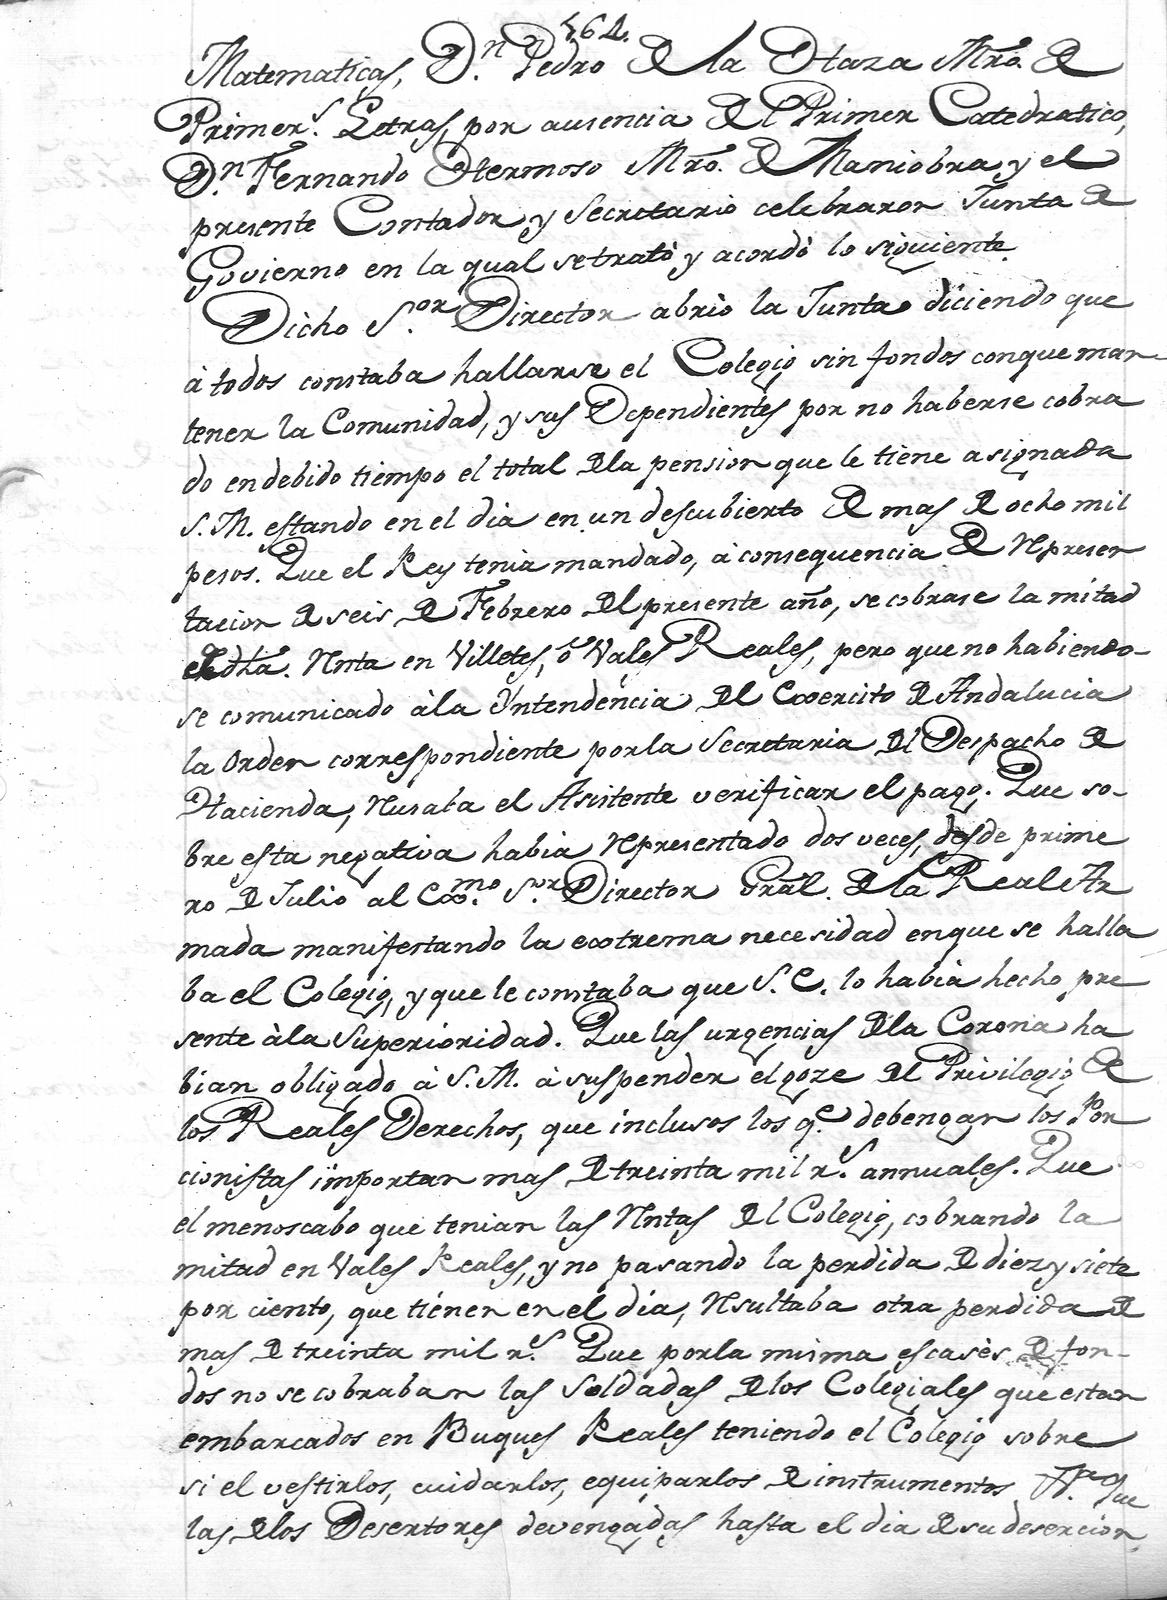 564.
Matematicas, D.n Pedro de la Staza Mro. de
Primer.s Letras, por ausencia del Primer Catedratico,
D.n Fernando Hermoso Mro. de Maniobra y el
presente Contador y Secretario celebraron Junta de
Govierno en la qual se trató y acordó lo siguiente.
Dicho S.or Director abrió la Junta diciendo que
à todos constaba hallarse el Colegio sin fondos conque man-
tener la Comunidad, y sus Dependientes por no haberse cobra
do en debido tiempo el total dela pension que le tiene asignada
S. M. estando en el dia en un descubierto de mas de ocho mil
pesos. Que el Rey tenia mandado, à consequencia de represen
tacion de seis de Febrero del presente año, se cobrase la mitad
de dha. renta en Villetes, ô Vales Reales, pero que no habiendo-
se comunicado àla Yntendencia del Exercito de Andalucia
la Orden correspondiente porla Secretaria del Despacho de
Hacienda, reusaba el Asistente verificar el pago. Que so-
bre esta negativa habia representado dos veces, desde prime
ro de Julio al Exmo. S.or Director Gral. de la Real Ar
mada manifestando la extrema necesidad enque se halla
ba el Colegio, y que le constaba que S. E. lo habia hecho pre
sente àla Superioridad. Que las urgencias dela Corona ha
bian obligado à S. M. à suspender el goze del Privilegio de
los Reales Derechos, que inclusos los q.e debengan los Por
cionistas importan mas de treinta mil r.s annuales. Que
el menoscabo que tenian las rentas del Colegio, cobrando la
mitad en Vales Reales, y no pasando la perdida de diez y siete
por ciento, que tienen en el dia, resultaba otra perdida de
mas de treinta mil r.s Que porla misma escasès de fon-
dos no se cobraban las Soldadas delos Colegiales que estan
embarcados en Buques Reales teniendo el Colegio sobre
si el vestirlos, cuidarlos, equiparlos de instrumentos &.a Que
las delos Desertores devengadas hasta el dia de su desercion,